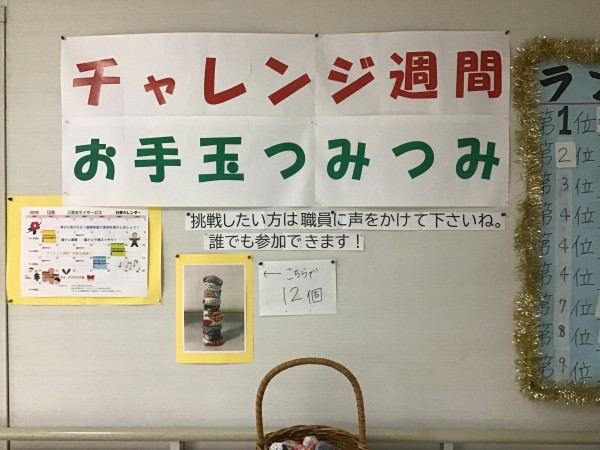 チャレンジ週間
お手玉つみつみ
挑戦したい方は職員に声をかけて下さいね。
誰でも参加できます！
← こちらが
12個
12月
三滝苑デイサービス
行事カレンダー
ラン
第1位
第2位
第3位
第4位
第4位
第4位
第7位
第8位
第9位